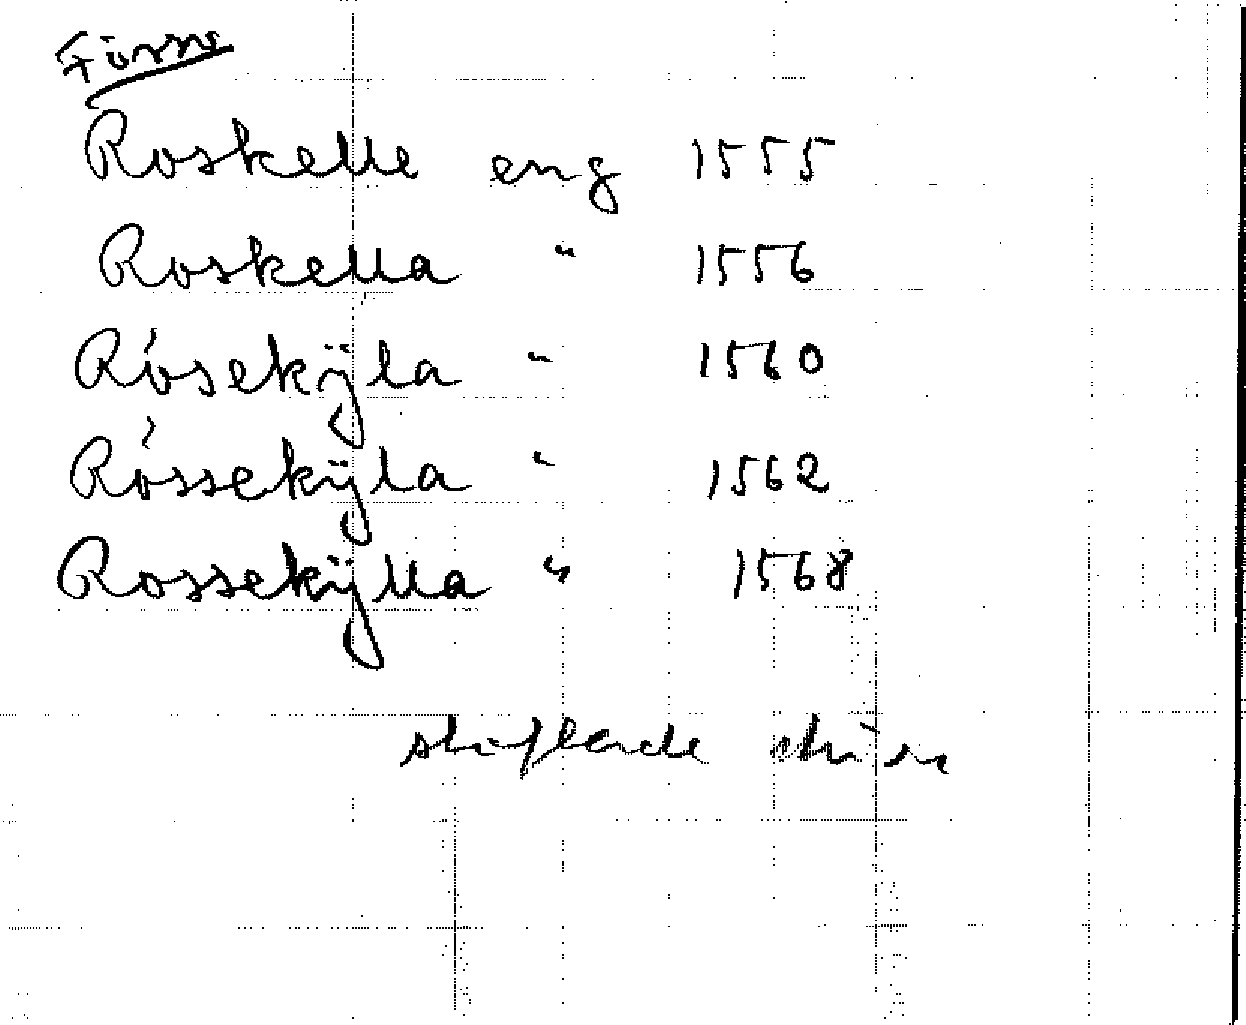 Försa
Roskelle eng 1555
Roskella " 1556
Rósekÿla " 1560
Róssekÿla " 1562
Rossekÿlla " 1568
skiftande